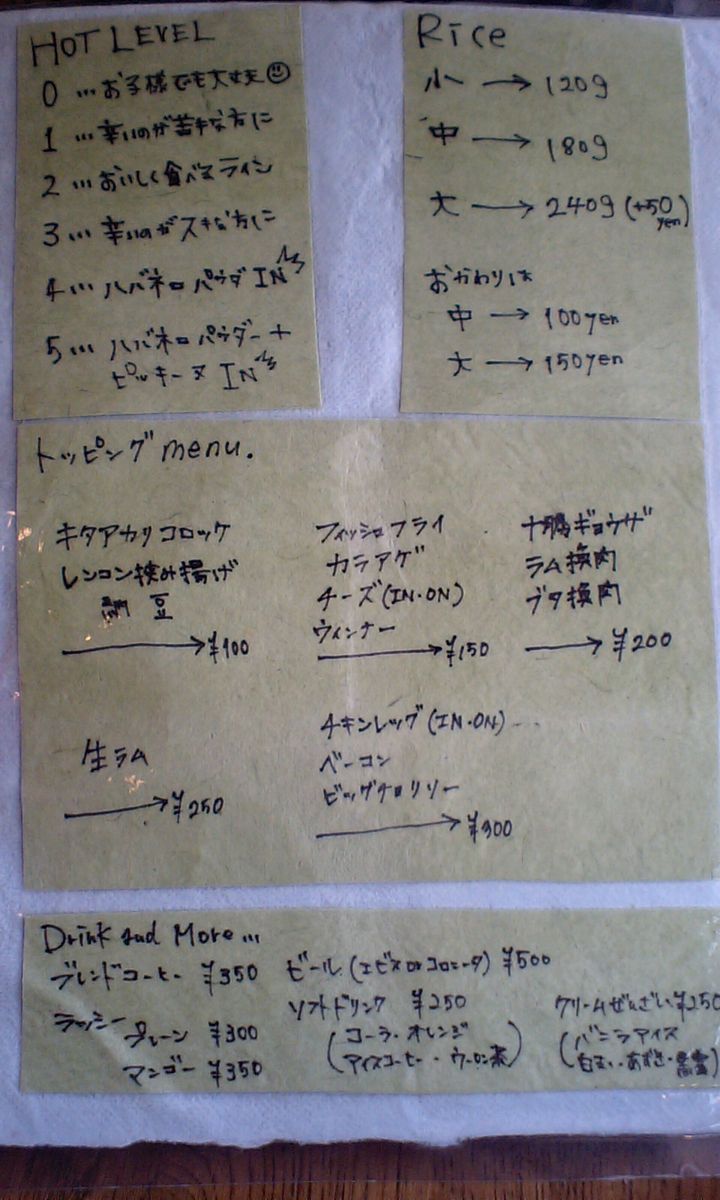 HOT LEVEL
0 … お子様でも大丈夫
1 … 辛いのが苦手な方に
2 … おいしく食べるライン
3 … 辛いのがスキな方に
4 … ハバネロパウダ IN
5 … ハバネロパウダー +
ピッキーヌ IN
Rice
小 → 120g
中 → 180g
大 → 240g (+50
yen)
おかわりは
中 → 100yen
大 → 150yen
トッピング menu.
キタアカリコロッケ
レンコン挟み揚げ
納豆
→ ¥100
フィッシュフライ
カラアゲ
チーズ (IN・ON)
ウィンナー
→ ¥150
ギョウザ
ラム挽肉
ブタ挽肉
→ ¥200
生ラム
→ ¥250
チキンレッグ (IN・ON)
ベーコン
ビッグチョリソー
→ ¥300
Drink and More…
ブレンドコーヒー ¥350
ラッシー
プレーン ¥300
マンゴー ¥350
ビール (エビス or コロナ) ¥500
ソフトドリンク ¥250
(コーラ・オレンジ
アイスコーヒー・ウーロン茶)
クリームぜんざい ¥250
(バニラアイス
白玉・あずき・)